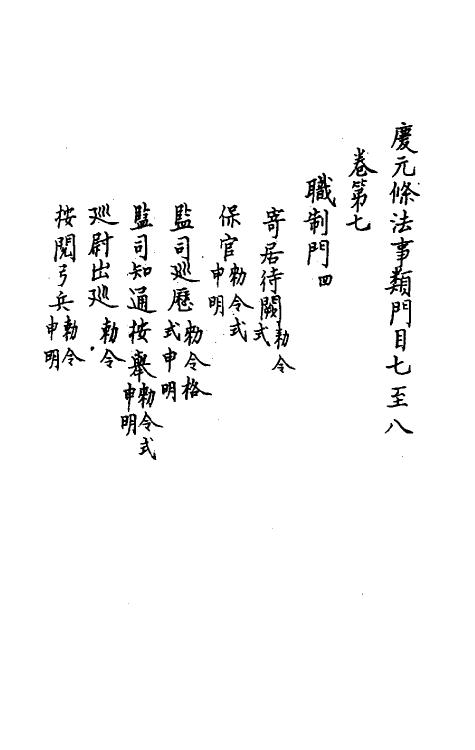 慶元條法事類門目七至八
卷第七
職制門四
寄居待闕勅令式
保官勅令式申明
監司巡歷勅令格式申明
監司知通按舉勅令式申明
巡尉出巡勅令
按閱弓兵勅令申明